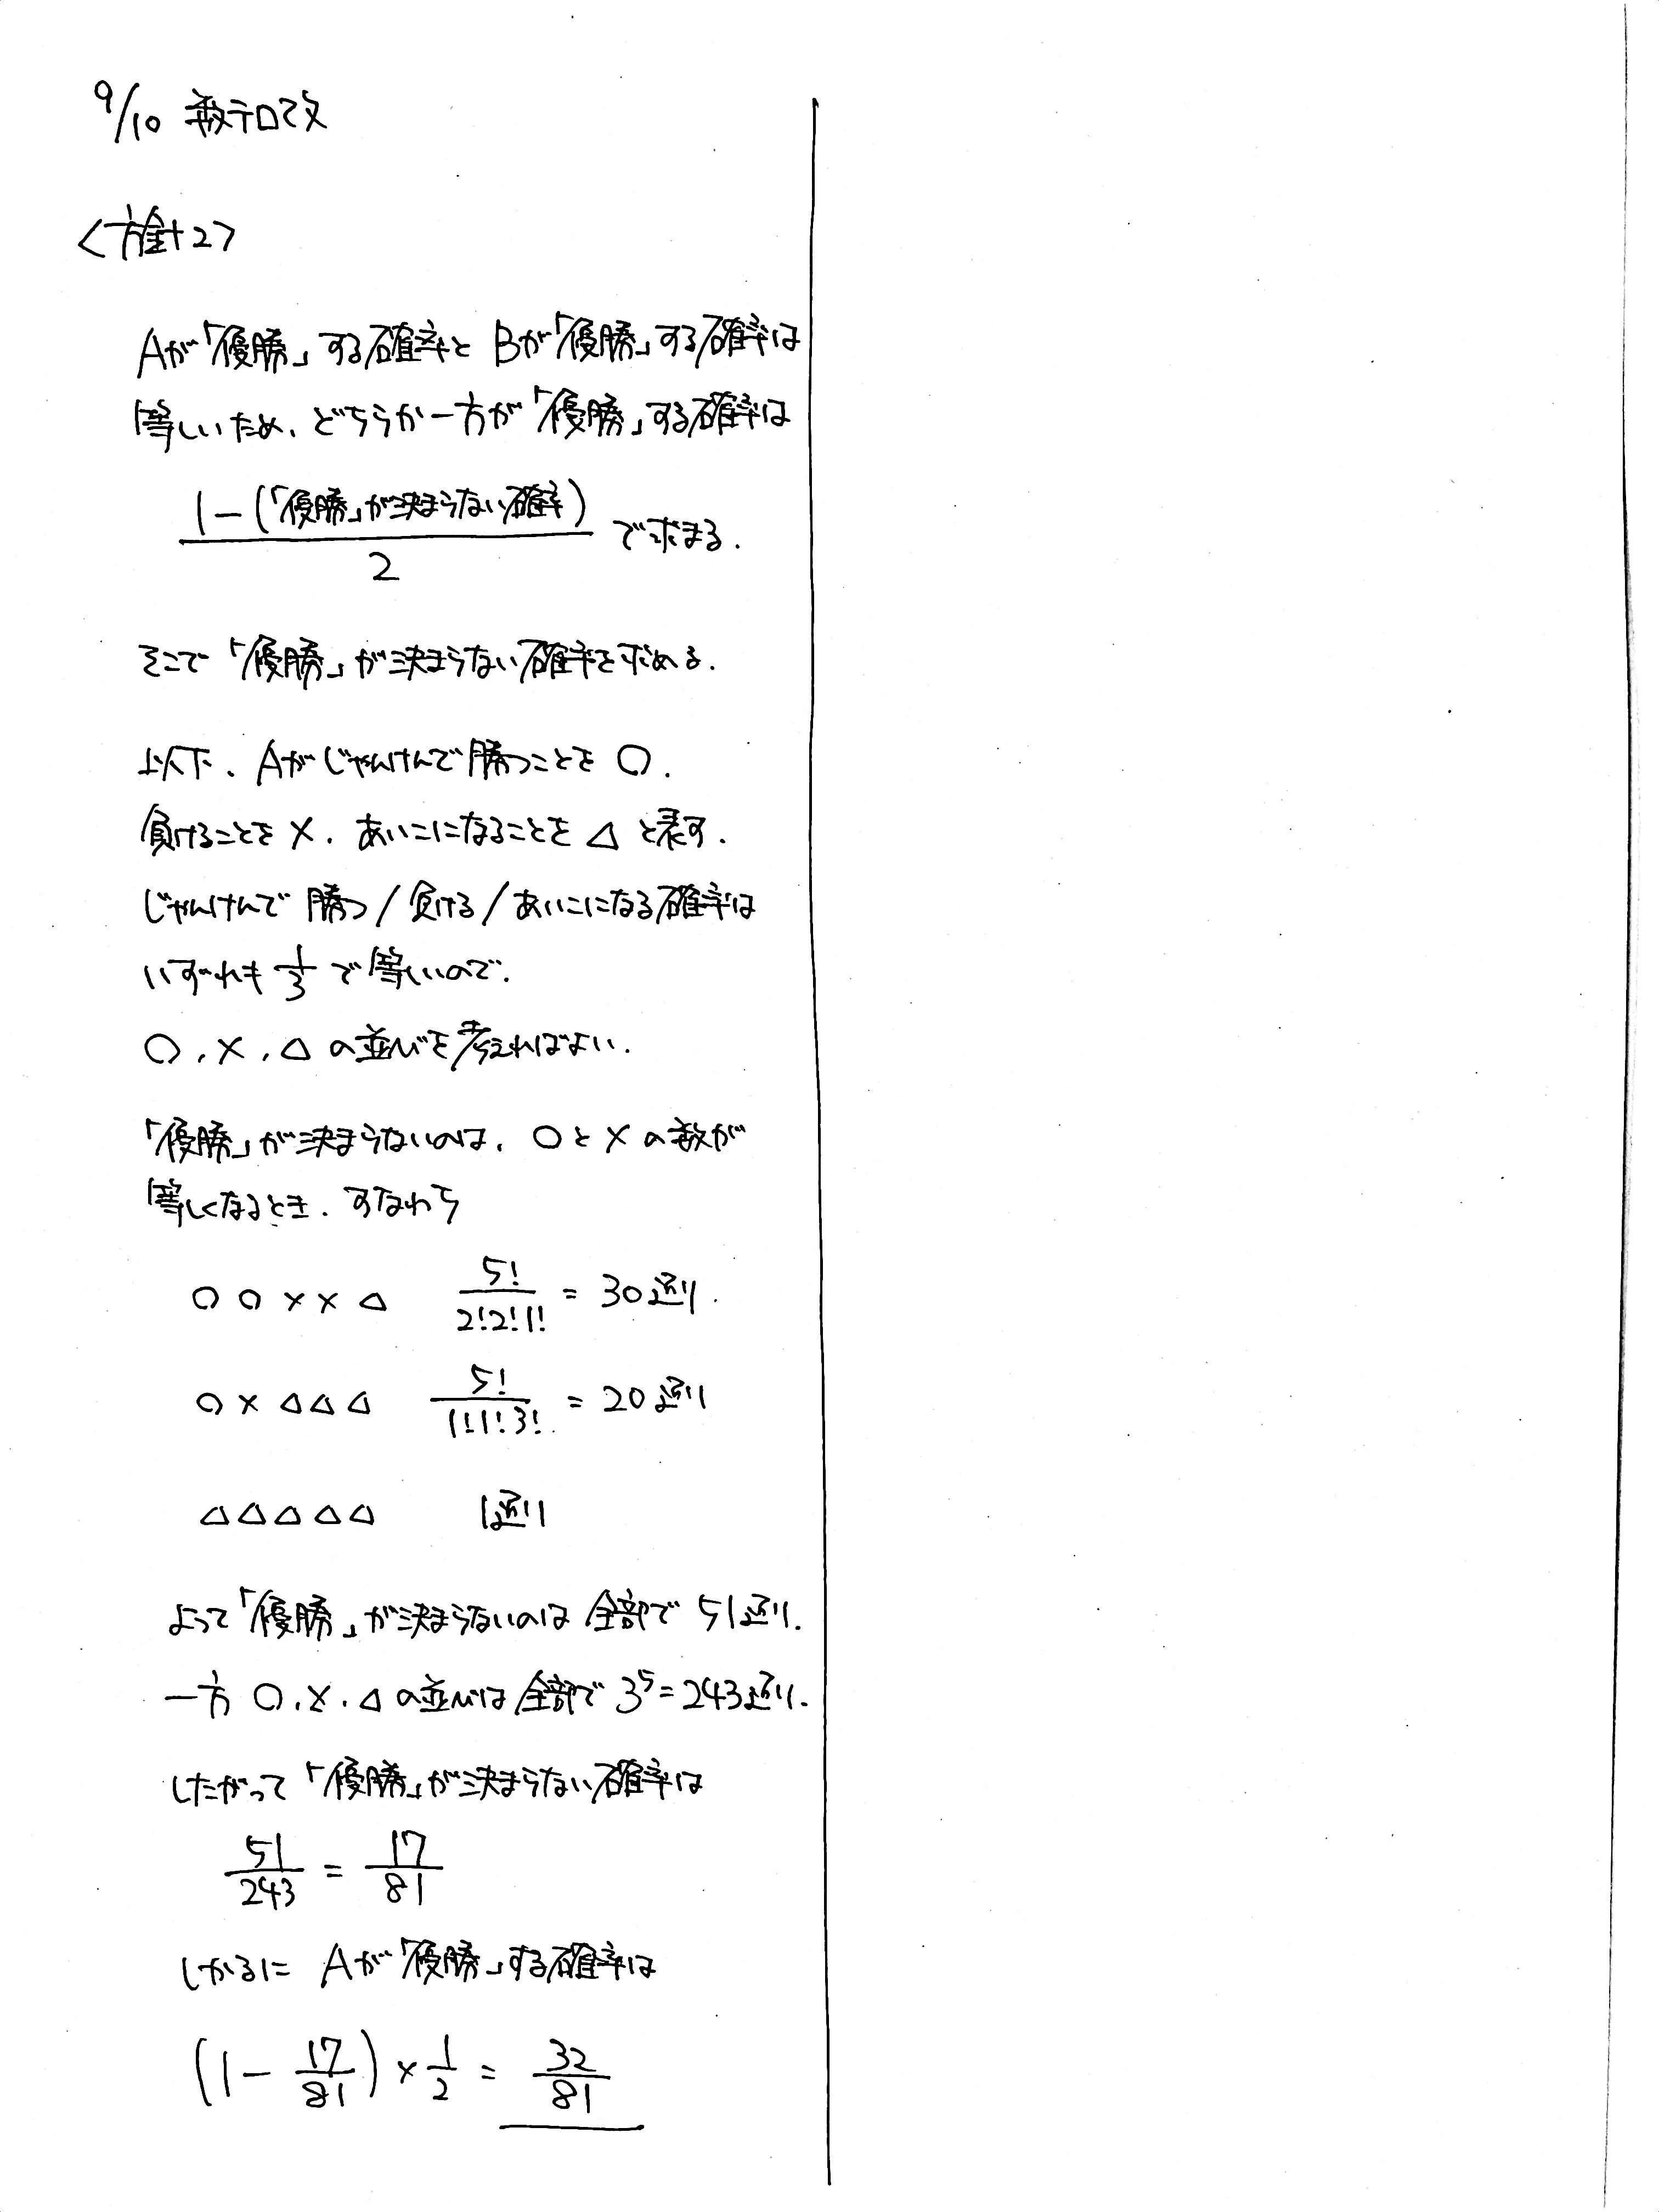 9/10 数テロ改
<方針2>
Aが「優勝」する確率と Bが「優勝」する確率は
等しいため、どちらか一方が「優勝」する確率は
(1-(「優勝」が決まらない確率))/2 で求まる.
そこで「優勝」が決まらない確率を求める.
以下、Aがじゃんけんで勝つことを ○.
負けることを ×. あいこになることを △ と表す.
じゃんけんで 勝つ/負ける/あいこになる確率は
いずれも 1/3 で等しいので.
○, ×, △ の並びを考えればよい.
「優勝」が決まらないのは、○と×の数が
等しくなるとき. すなわち
○ ○ × × △ 5!/(2!2!1!) = 30通り.
○ × △ △ △ 5!/(1!1!3!) = 20通り
△ △ △ △ △ 1通り
よって「優勝」が決まらないのは 全部で 51通り.
一方 ○, ×, △ の並びは 全部で 3^5 = 243通り.
したがって「優勝」が決まらない確率は
51/243 = 17/81
しかるに Aが「優勝」する確率は
(1 - 17/81) × 1/2 = 32/81